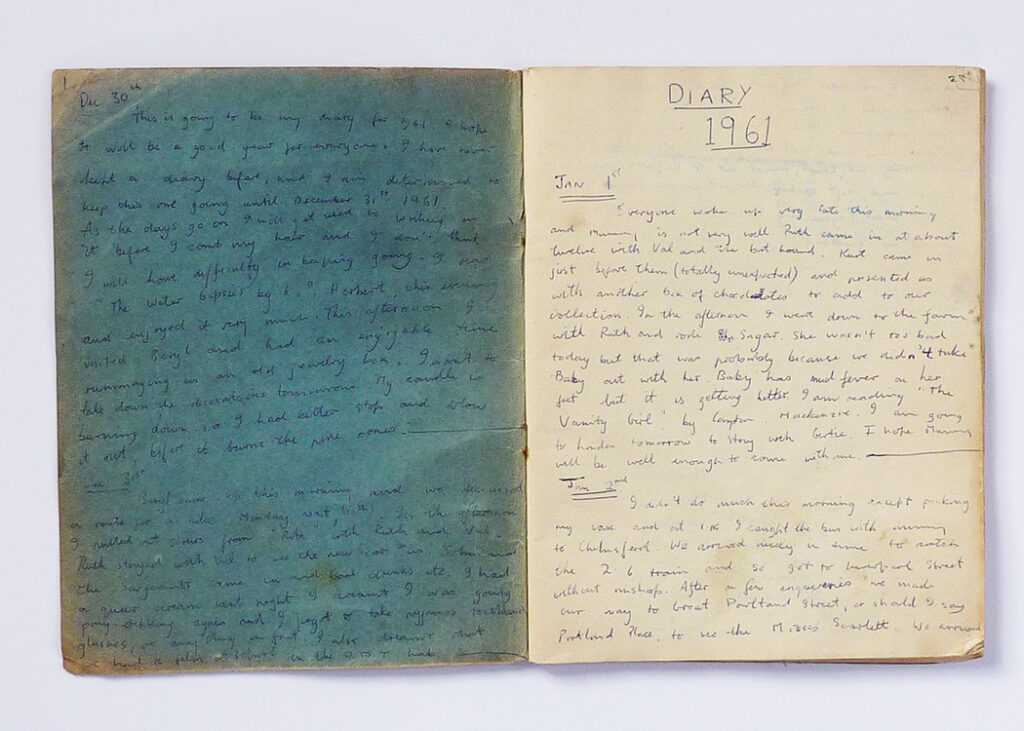 1
Dec 30th
This is going to be my diary for 1961. I hope
it will be a good year for everyone. I have never
kept a diary before, and I am determined to
keep this one going until December 31st 1961.
As the days go on I will get used to writing in
it before I comb my hair and I don't think
I will have difficulty in keeping going. I
"The Water Gipsies" by A. P. Herbert, this evening
and enjoyed it very much. This afternoon I
visited Beryl and had an enjoyable time
rummaging in an old jewelry box. I want to
take down the decorations tomorrow. My candle is
burning down so I had better stop and blow
it out, before it burns the pine cones.
Dec 31st
Beryl came up this morning and we discussed
a route for a Monday In the afternoon
I from "Ruth" with Ruth and Val.
Ruth stayed with Val to see the new year in. John and
the sargeants came in and had drinks etc. I had
a queer dream last night I dreamt I was going
pony-trekking again and I forgot to take pyjamas toothbrush
glasses, or anything in fact. I also dreamt that
we had a in the hall.
2
DIARY
1961
Jan 1st
Everyone woke up very late this morning
and Mummy is not very well Ruth came in at about
twelve with Val and the bat hound. Kurt came in
just before them (totally unexpected) and presented us
with another box of chocolates to add to our
collection. In the afternoon I went down to the farm
with Ruth and rode Sugar. She wasn't too bad
today but that was probably because we didn't take
Baby out with her. Baby has mud fever on her
feet but it is getting better. I am reading "The
Vanity Girl" by Compton Mackenzie. I am going
to London tomorrow to stay with Gertie. I hope Mummy
will be well enough to come with me.
Jan 2nd
I didn't do much this morning except packing
my case and at I caught the bus with mummy
to Chelmsford. We arrived nicely in time to catch
the 2 6 train and so got to Liverpool Street
without mishap. After a few enqueries we made
our way to Great Portland Street, or should I say
Portland Place, to see the Misses Scarlett. We arrived